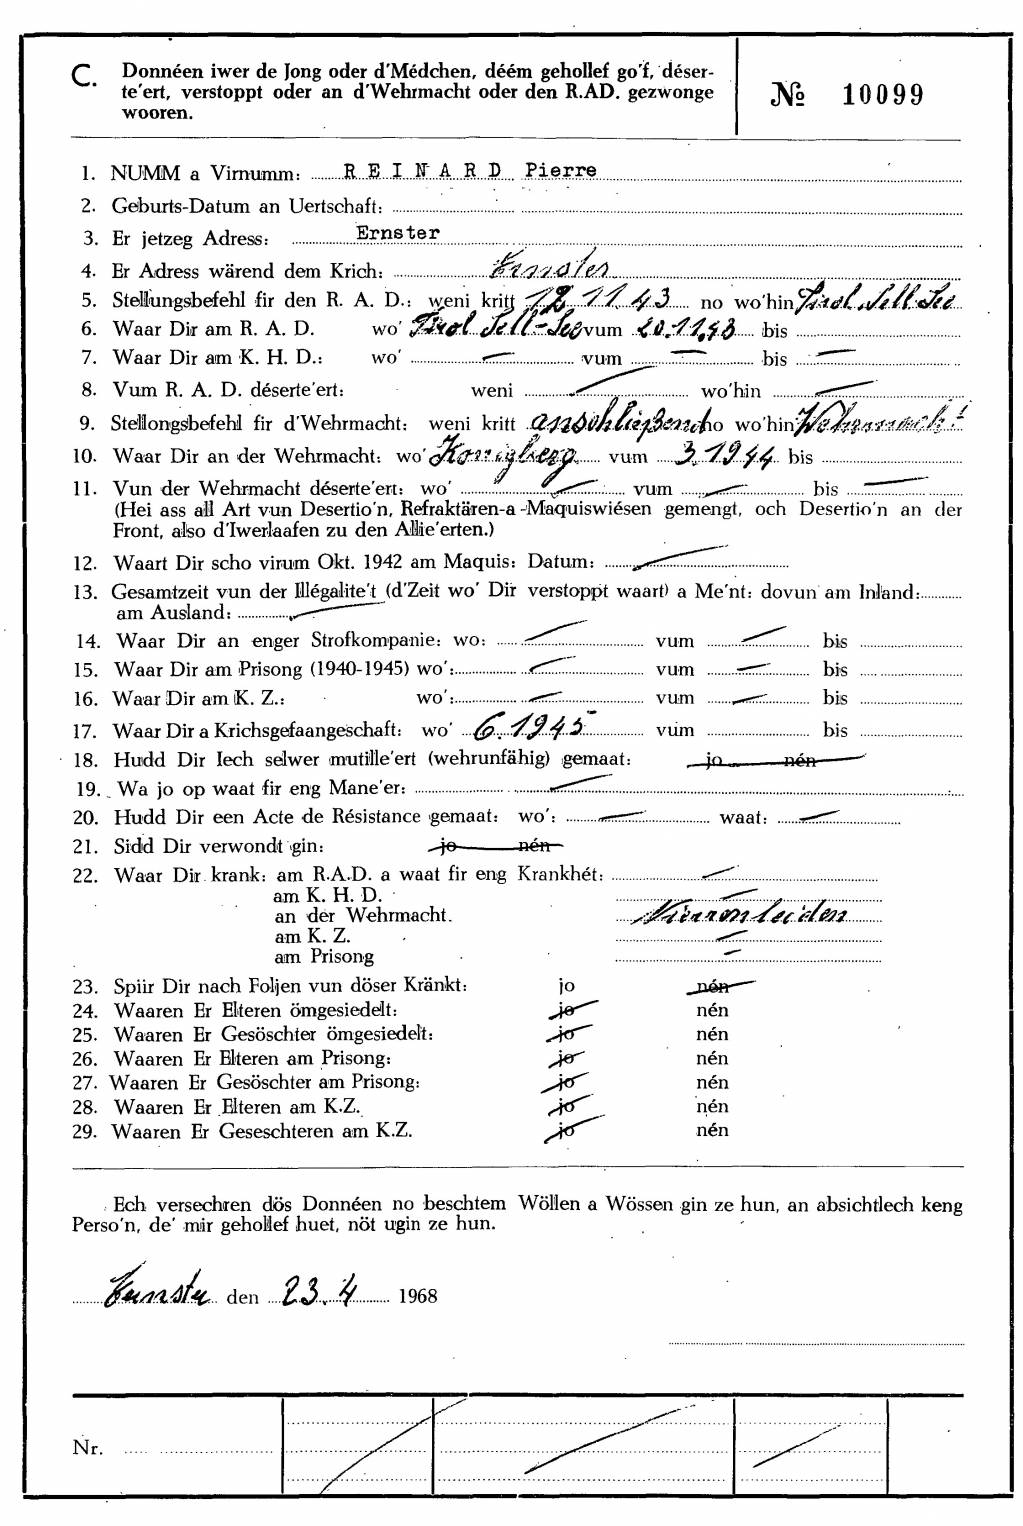 C. Donnéen iwer de Jong oder d'Médchen, déém gehollef go'f, déser-
te'ert, verstoppt oder an d'Wehrmacht oder den R.AD. gezwonge
wooren.
№ 10099
1. NUMM a Virnumm: REINARD Pierre
2. Geburts-Datum an Uertschaft:
3. Er jetzeg Adress: Ernster
4. Er Adress wärend dem Krich: Ernster
5. Stellungsbefehl fir den R. A. D.: weni kritt 12.11.43 no wo'hin Tirol Sell-See
6. Waar Dir am R. A. D. wo' Tirol Sell-See vum 20.11.43 bis
7. Waar Dir am K. H. D.: wo' — vum — bis —
8. Vum R. A. D. déserte'ert: weni wo'hin
9. Stellongsbefehl fir d'Wehrmacht: weni kritt anschließend no wo'hin Wehrmacht
10. Waar Dir an der Wehrmacht: wo' Königberg vum 3.1944 bis
11. Vun der Wehrmacht déserte'ert: wo' vum bis
(Hei ass all Art vun Desertio'n, Refraktären-a-Maquiswiésen gemengt, och Desertio'n an der
Front, also d'Iwerlaafen zu den Allie'erten.)
12. Waart Dir scho virum Okt. 1942 am Maquis: Datum:
13. Gesamtzeit vun der Illégalite't (d'Zeit wo' Dir verstoppt waart) a Me'nt: dovun am Inland:
am Ausland:
14. Waar Dir an enger Strofkompanie: wo: vum bis
15. Waar Dir am Prisong (1940-1945) wo': vum bis
16. Waar Dir am K. Z.: wo': vum bis
17. Waar Dir a Krichsgefaangeschaft: wo' 6.1945 vum bis
18. Hudd Dir Iech selwer mutille'ert (wehrunfähig) gemaat: jo nén
19. Wa jo op waat fir eng Mane'er:
20. Hudd Dir een Acte de Résistance gemaat: wo': waat:
21. Sidd Dir verwondt gin: jo nén
22. Waar Dir krank: am R.A.D. a waat fir eng Krankhét:
am K. H. D.
an der Wehrmacht. Nierenleiden
am K. Z.
am Prisong
23. Spiir Dir nach Foljen vun döser Kränkt: jo nén
24. Waaren Er Elteren ömgesiedelt: jo nén
25. Waaren Er Gesöschter ömgesiedelt: jo nén
26. Waaren Er Elteren am Prisong: jo nén
27. Waaren Er Gesöschter am Prisong: jo nén
28. Waaren Er Elteren am K.Z. jo nén
29. Waaren Er Geseschteren am K.Z. jo nén
Ech versechren dös Donnéen no beschtem Wöllen a Wössen gin ze hun, an absichtlech keng
Perso'n, de' mir gehollef huet, nöt ugin ze hun.
Ernster den 23.4 1968
Nr.